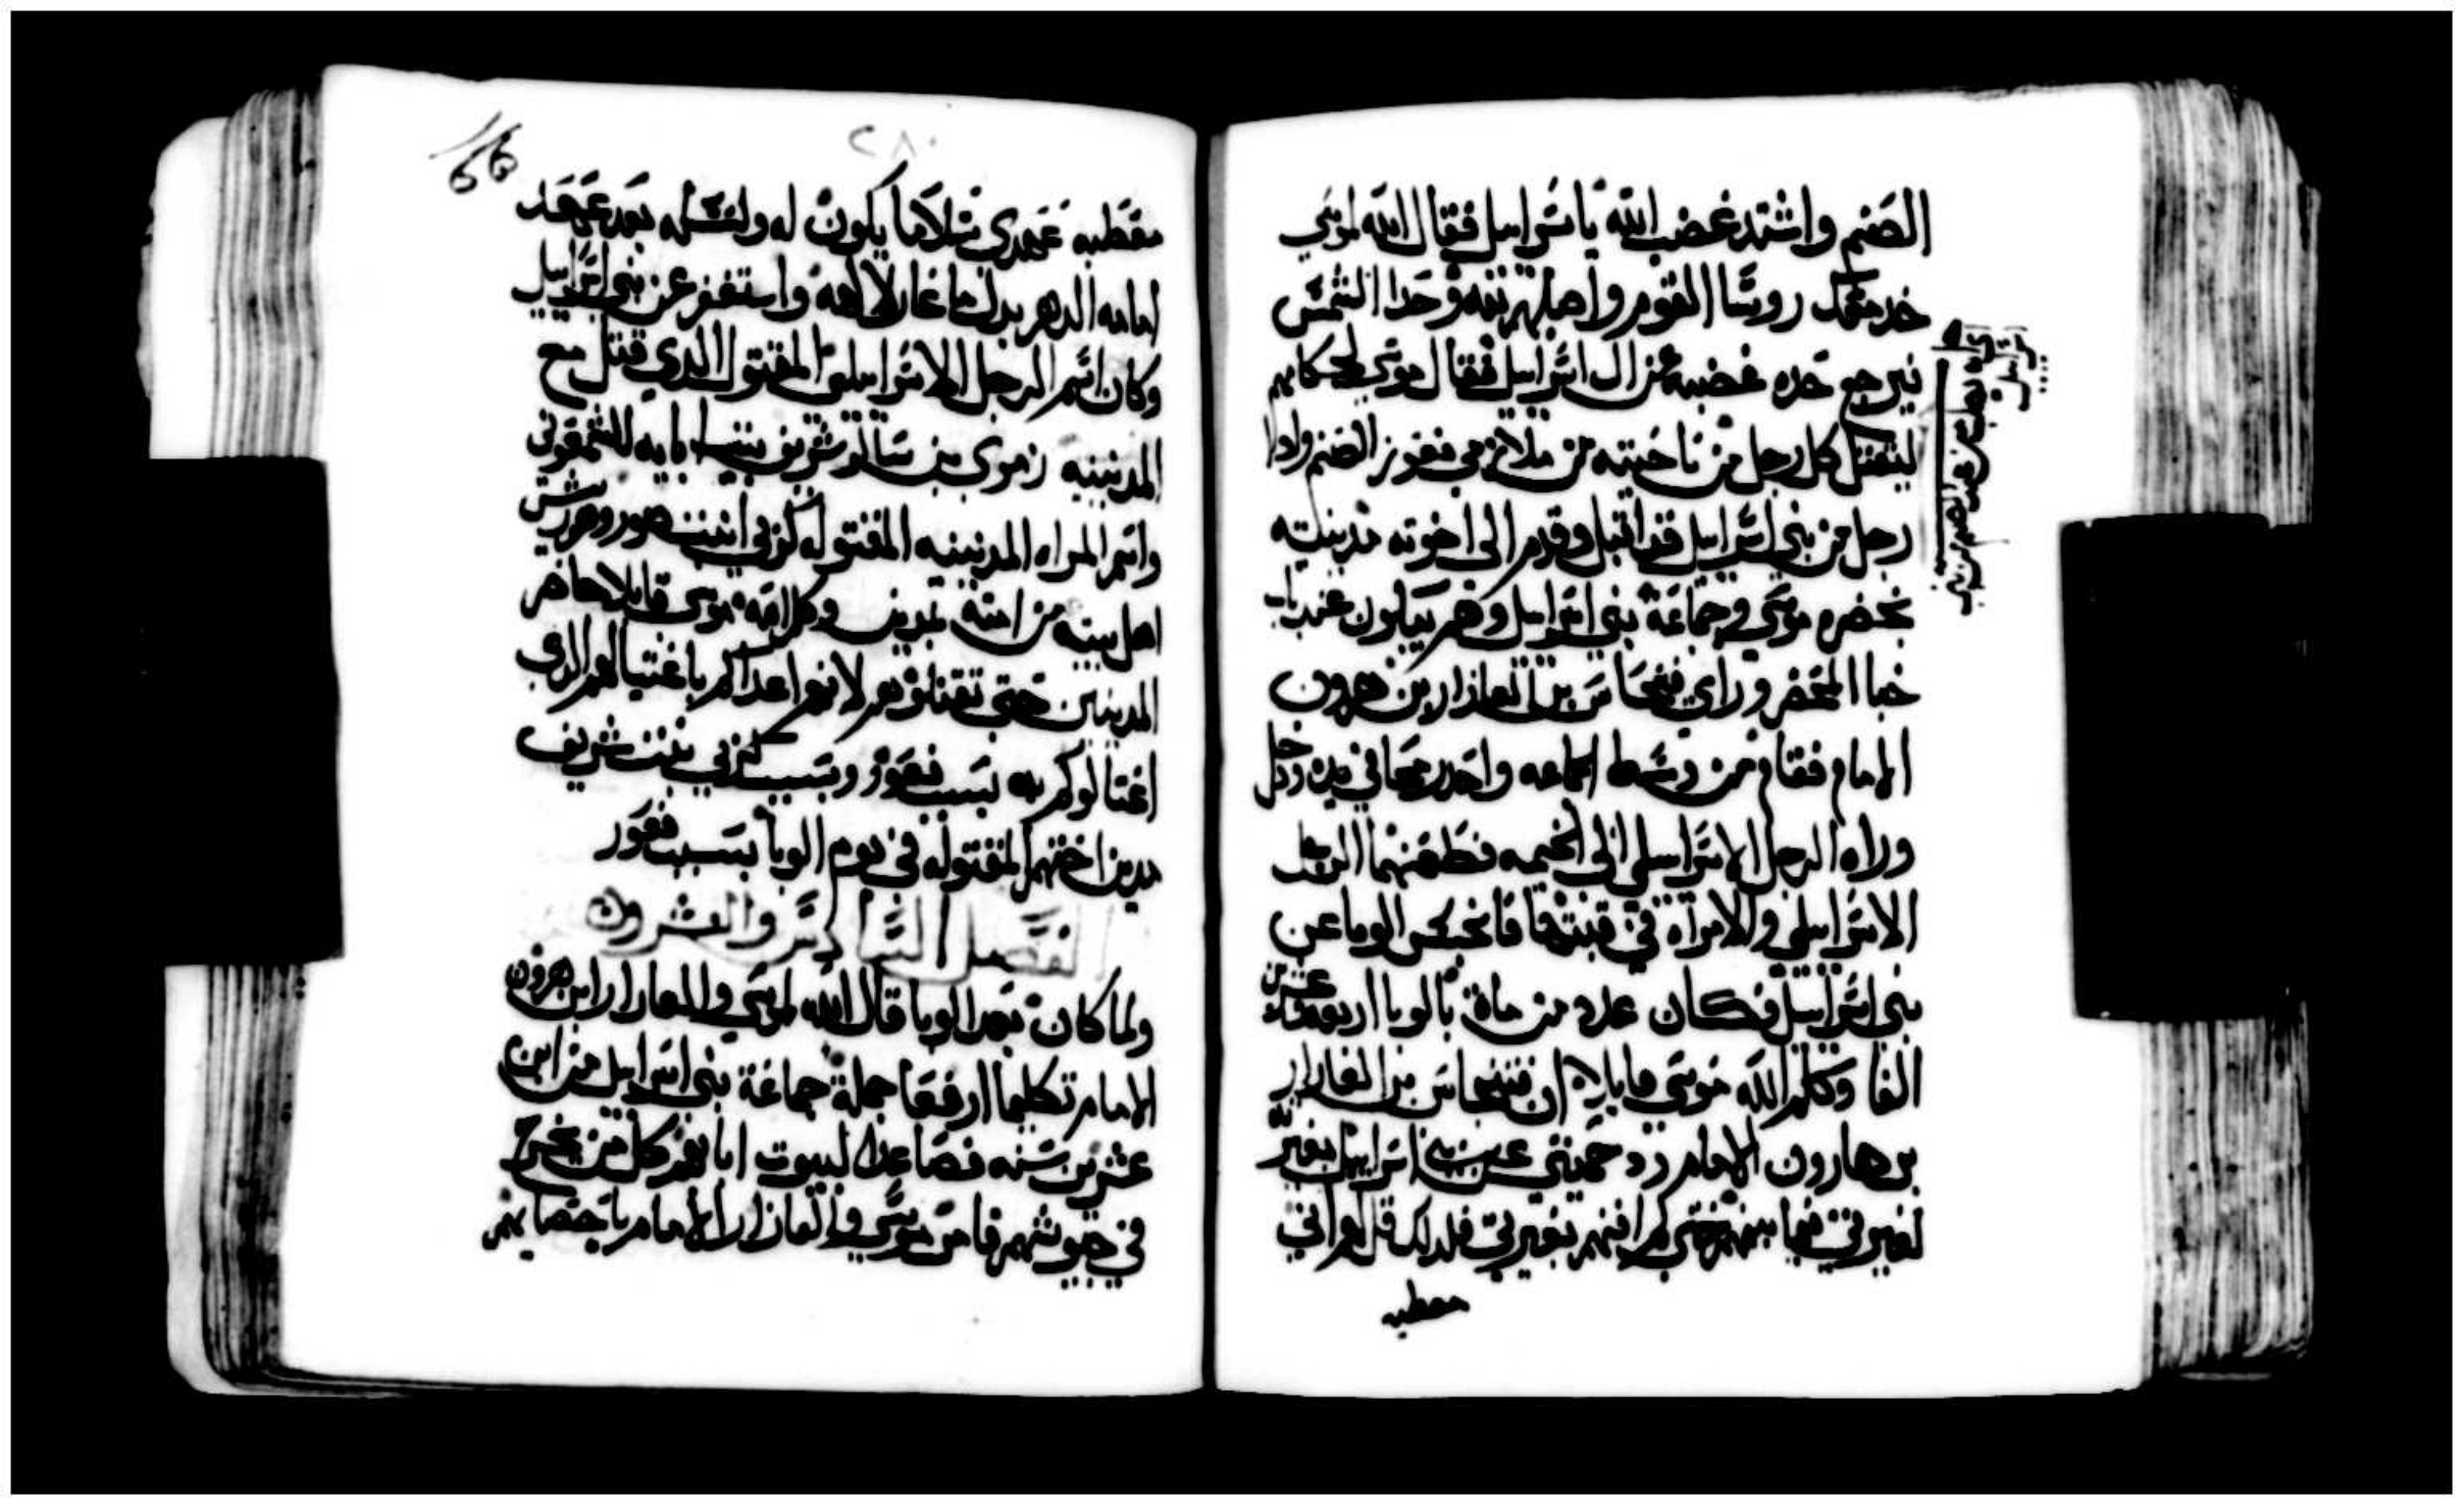 الصنم واشتد غضب الله ياسراييل فقال الله لموسي
خد معك روسا القوم واصلبهم تلقو حدا الشمس
فيرجع حده غضبه عن ال اسراييل فقال موسي لحكامهم
ليقتل كل رجل من ناحيته من ملازمي فغور الصنم وادا
رجل من بني اسراييل قد اقبل وقدم الي اخوته مدينيته
بحضره موسي وجماعة بني اسراييل وهم يبكون عند باب
خبا المحضر وراي فينحاس بن العازار بن هرون
الامام فقام من وسط الجماعه واخد رمحا في يده ودخل
وراه الرجل الاسراييلي الي الخيمه فطعنهما الرجل
الاسراييلي والامراة في قبتهما فانحبس الوبا عن
بني اسراييل فكان عدد من مات بالوبا اربعه وعشرين
الفا وكلم الله موسي قايلا ان فينحاس بن العازار
بن هارون الامام رد حميتي عن بني اسراييل بغيرته
لغيرتي فيما بينهم حتي لم افنهم بغيرتي فلدلك قل لهم اني
معطيه
٢٨٠
166
معطيه عهدي سلاما يكون له ولنسله بعد عهد
امامه الدهر بدل ما غار لالهه واستغفر عن بني اسراييل
وكان اسم الرجل الاسراييلي المقتول الدي قتل مع
المدينيه زمري بن سالو شريف بيت ابايه للشمعوني
واسم المراه المدينيه المقتوله كزبي ابنت صور وهو ريس
اهل بيته من امته بمدين وكلم الله موسي قايلا حاضر
المدينين حتي تقتلوهم لانهم اعداكم باغتيالهم الدي
اغتالوكم به بسبب فغور وبسبب كزبي بنت شريف
مدين اختهم المقتوله في يوم الوبا بسبب فغور
الفصل السادس والعشرون
ولما كان بعد الوبا قال الله لموسي والعازار ابن هرون
الامام تكلما ارفعا جملة جماعة بني اسراييل من ابن
عشرين سنه فصاعدا لبيوت ابايهم كل من يخرج
في جيوشهم فامر موسي والعازار الامام باحصايهم